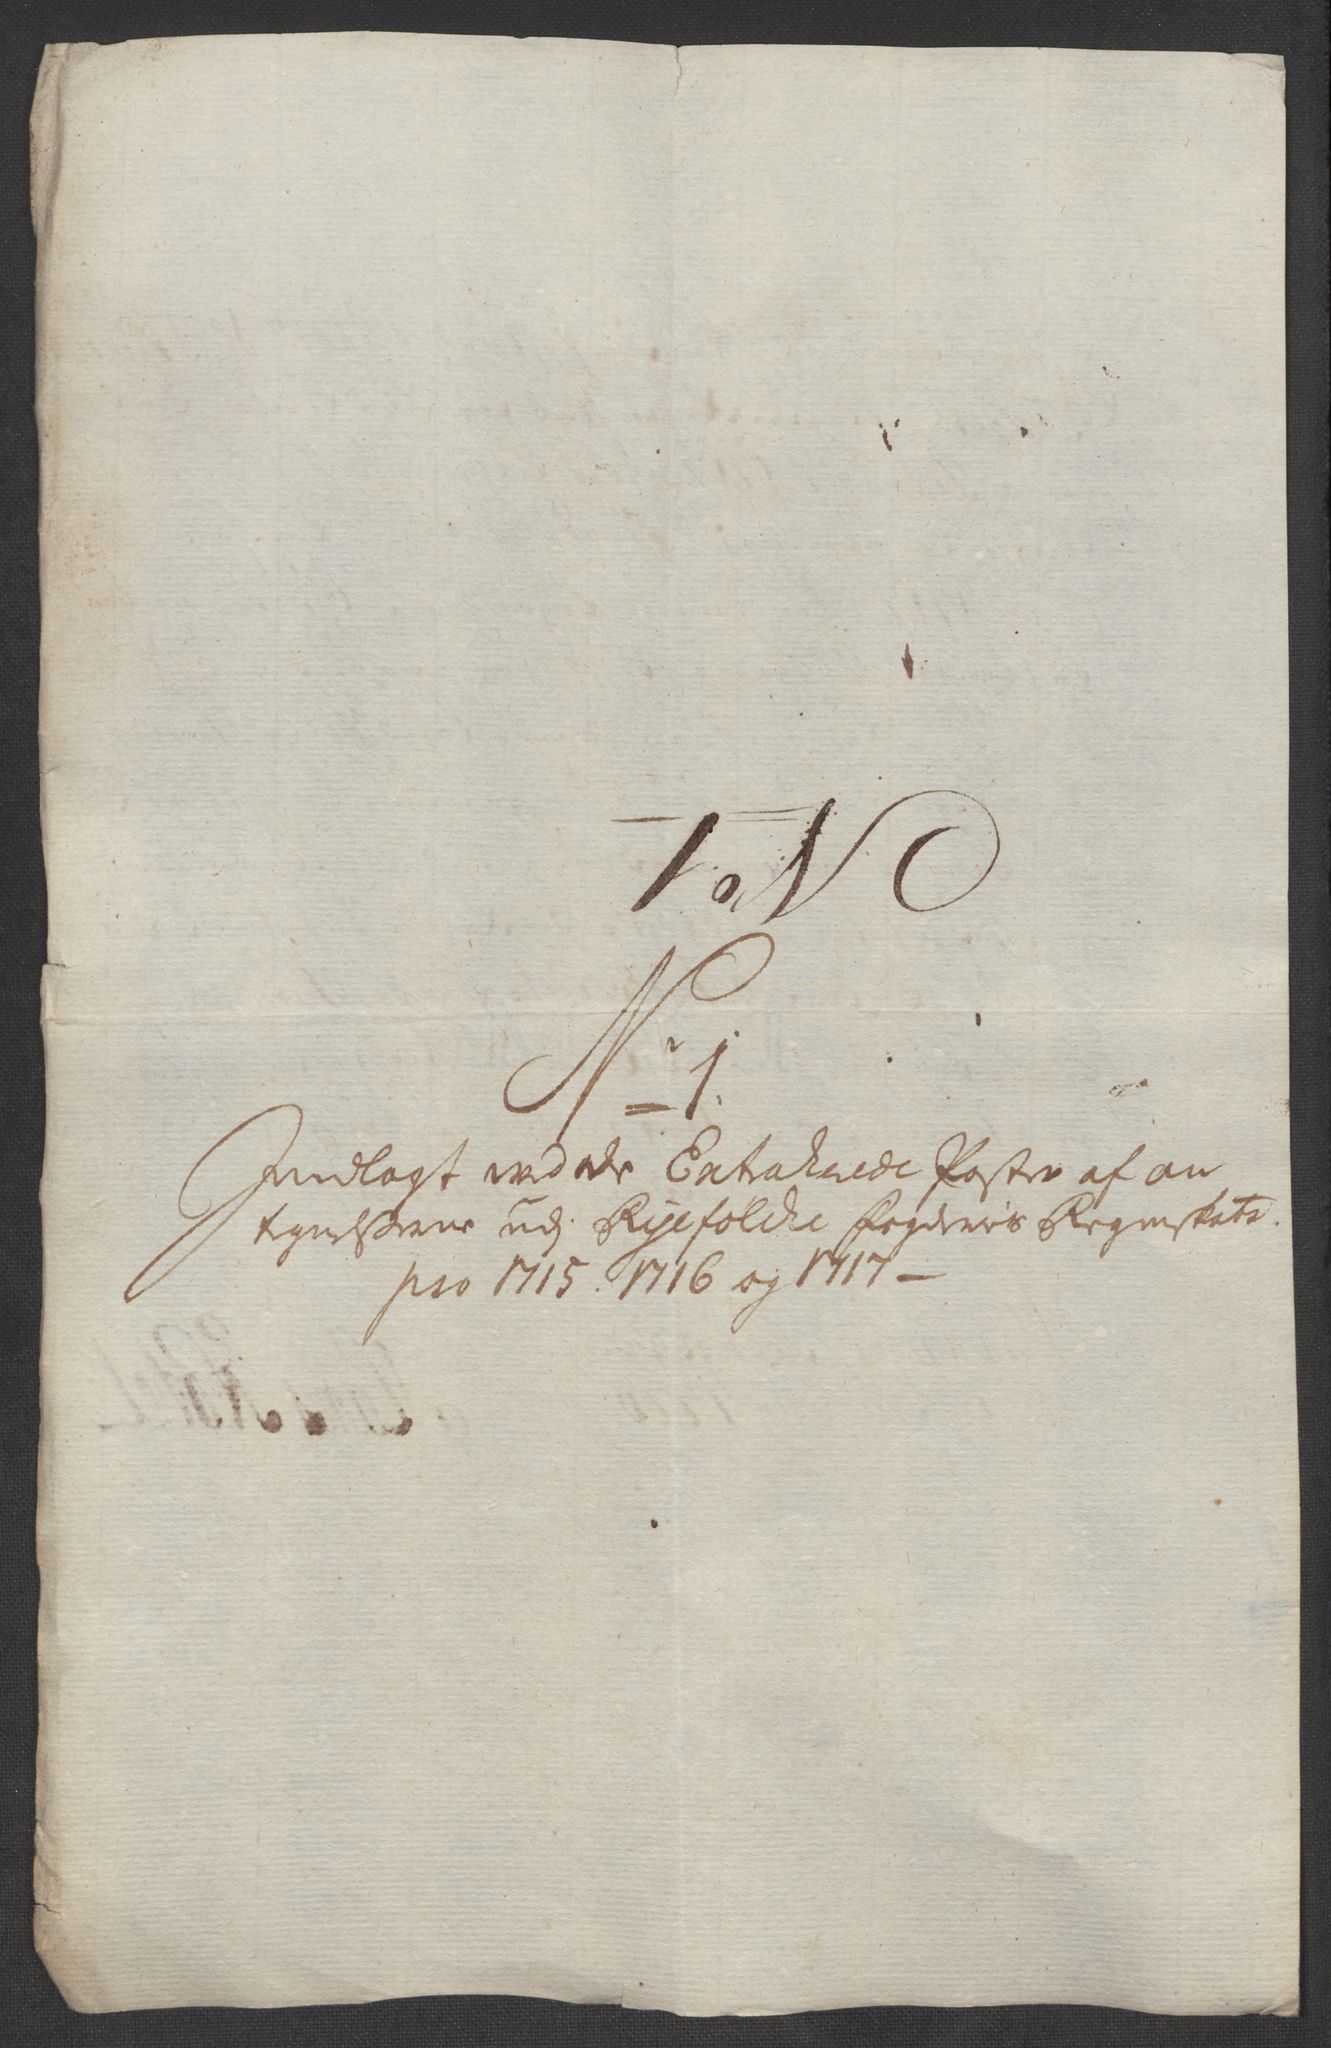 No 1
No 1.
Indlagt ved de Extraherede Poster af an
tegnelserne udj Ryefölche fogderies Regenskab
pro 1715. 1716 og 1717